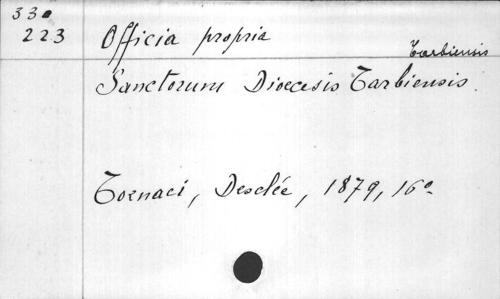 330
223
Officia propria
Tarbiensis
Sanctorum Dioecesis Tarbiensis.
Tornaci, Desclée, 1879, 16°